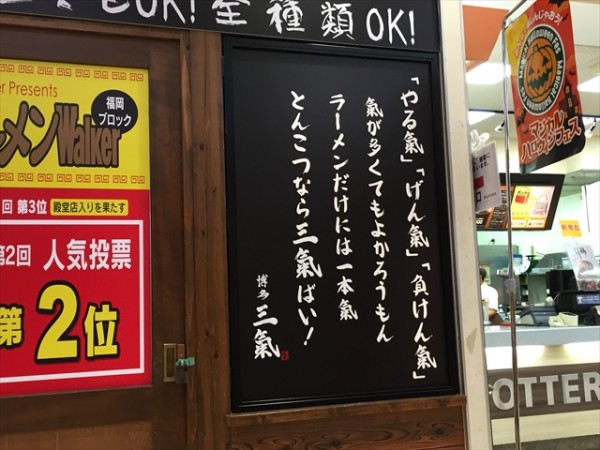 全種類OK!
Presents
ーメンWalker
福岡
ブロック
回 第3位 殿堂店入りを果たす
第2回 人気投票
第2位
「やる氣」「げん氣」「負けん氣」
氣が多くてもよかろうもん
ラーメンだけには一本氣
とんこつなら三氣ばい!
博多 三氣
マジカル
ハロウィンフェス
OTTER